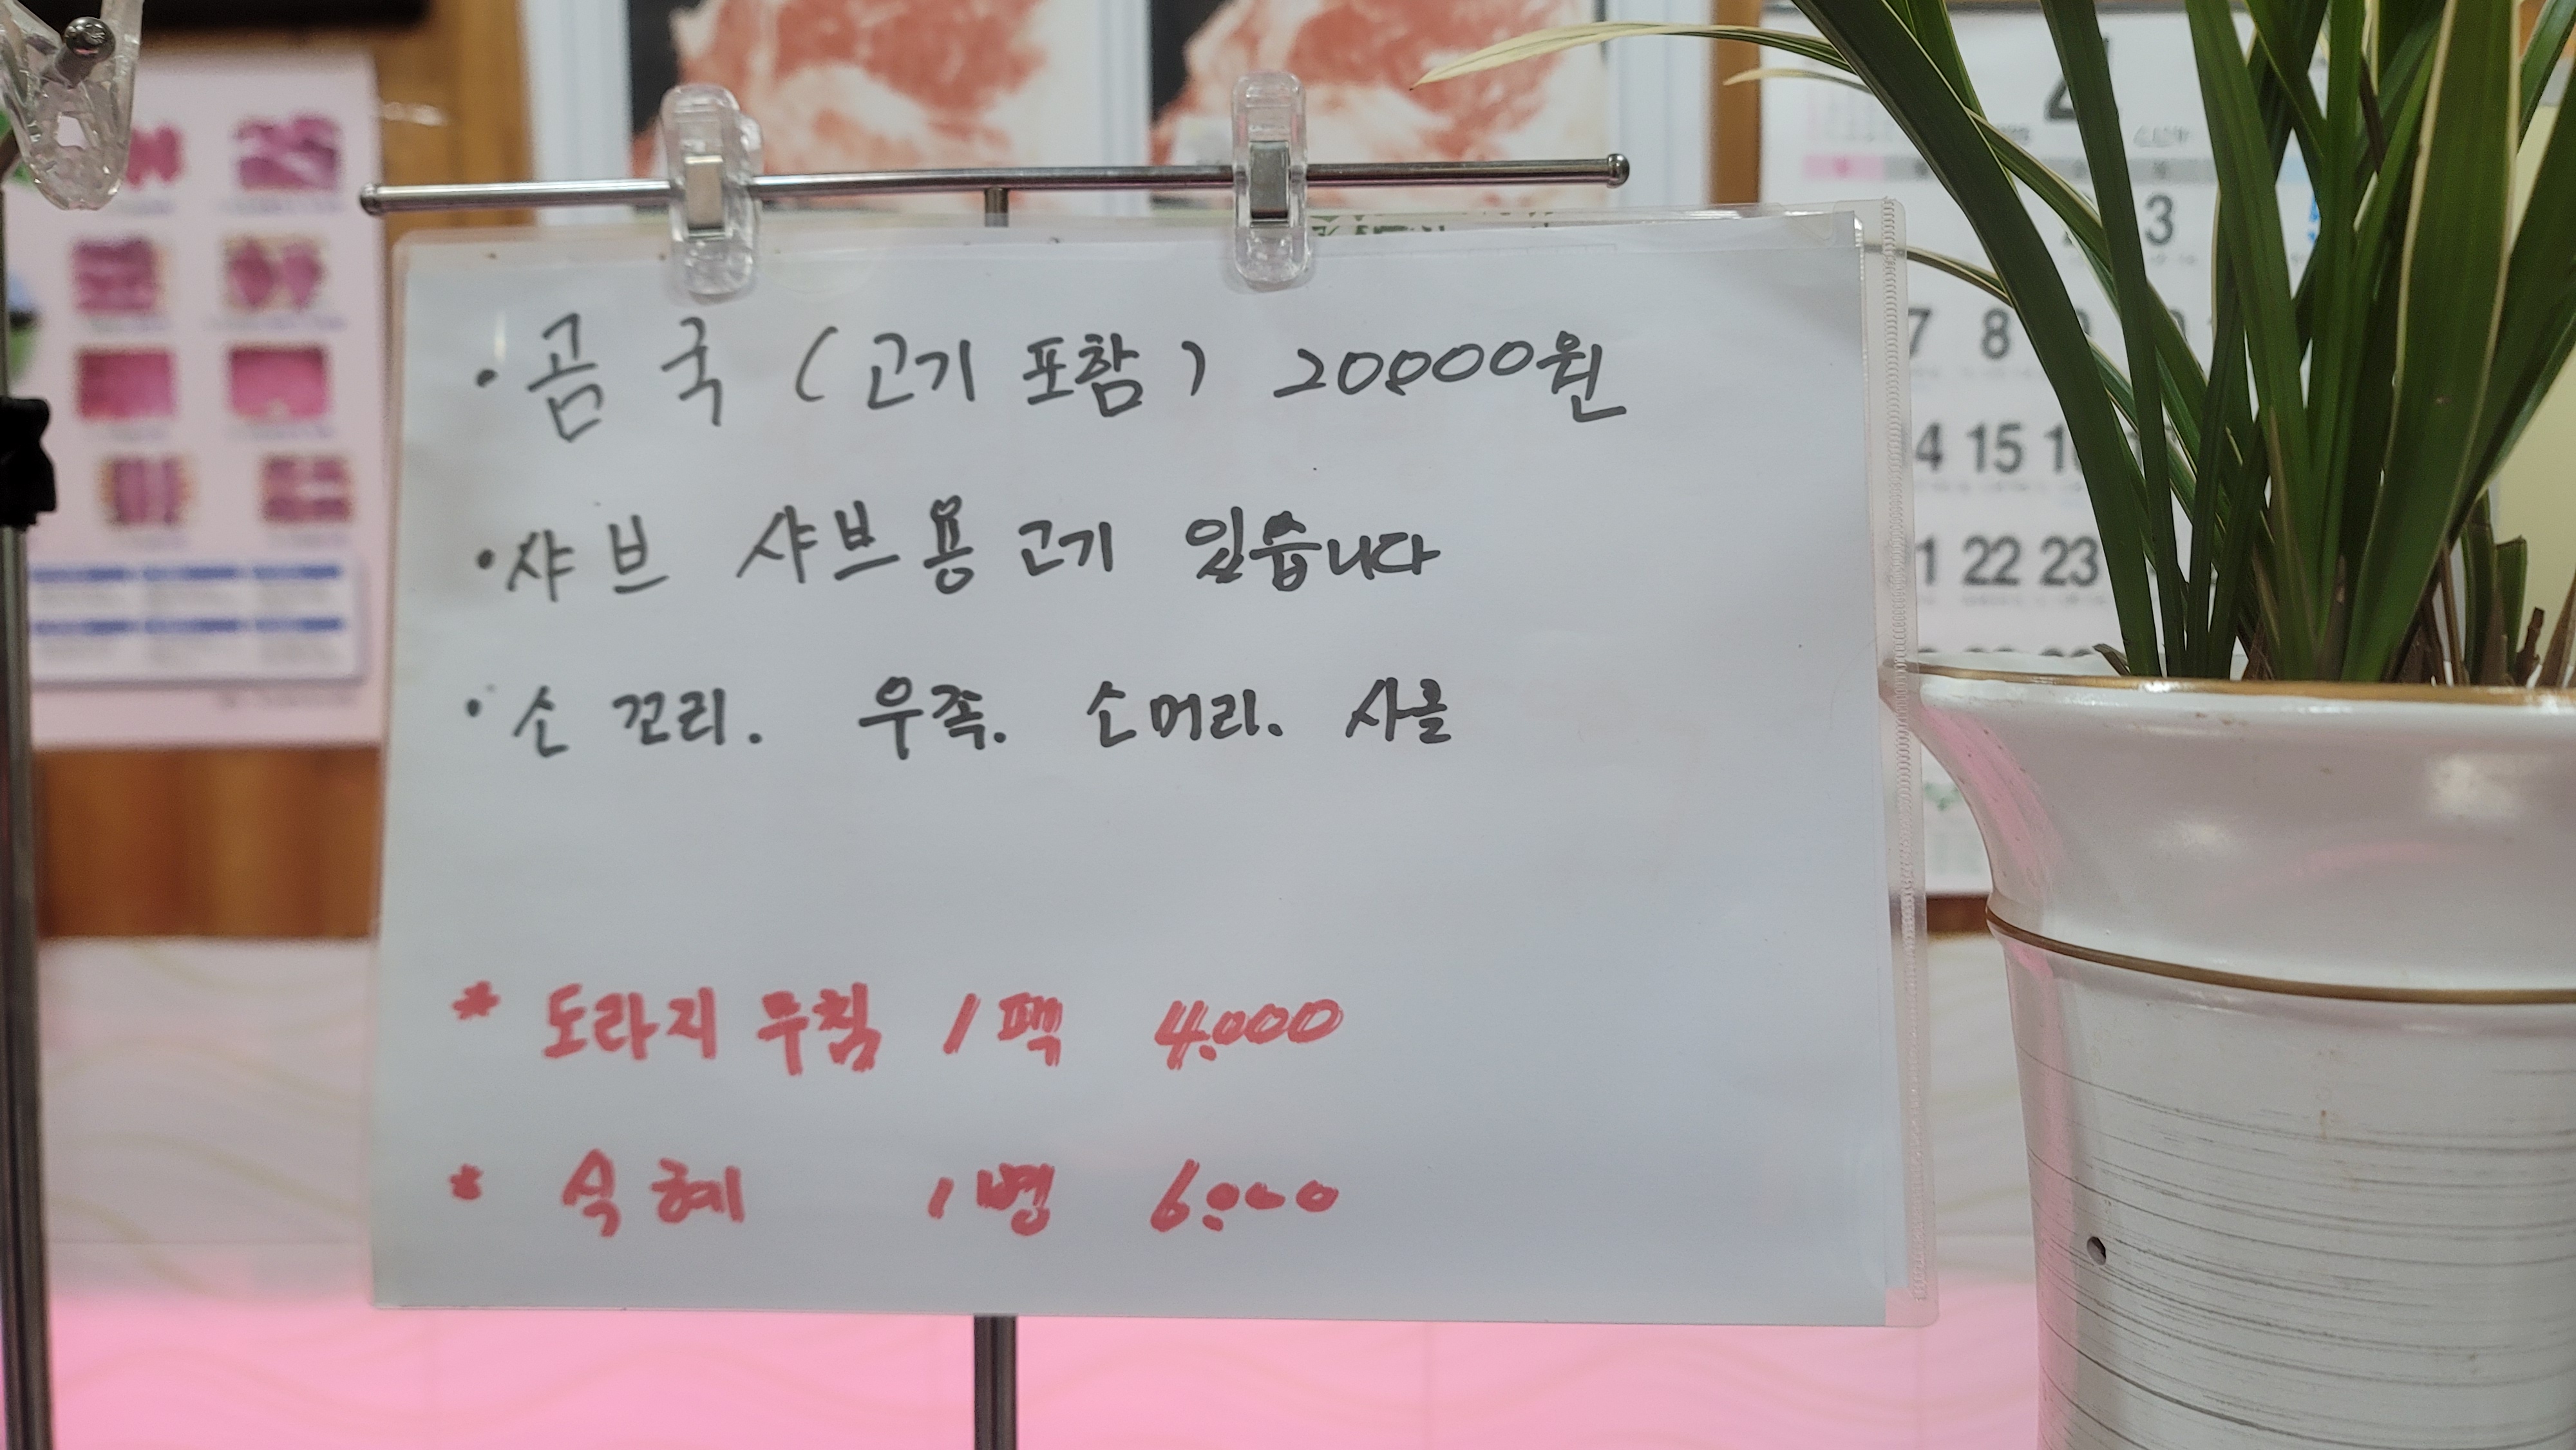 • 곰 국 ( 고기 포함 ) 20.000원
• 샤브 샤브용 고기 있습니다
• 소 꼬리. 우족. 소머리. 사골
* 도라지 무침 1팩 4.000
* 식혜 1병 6.000
4
3
7 8
4 15
1 22 23